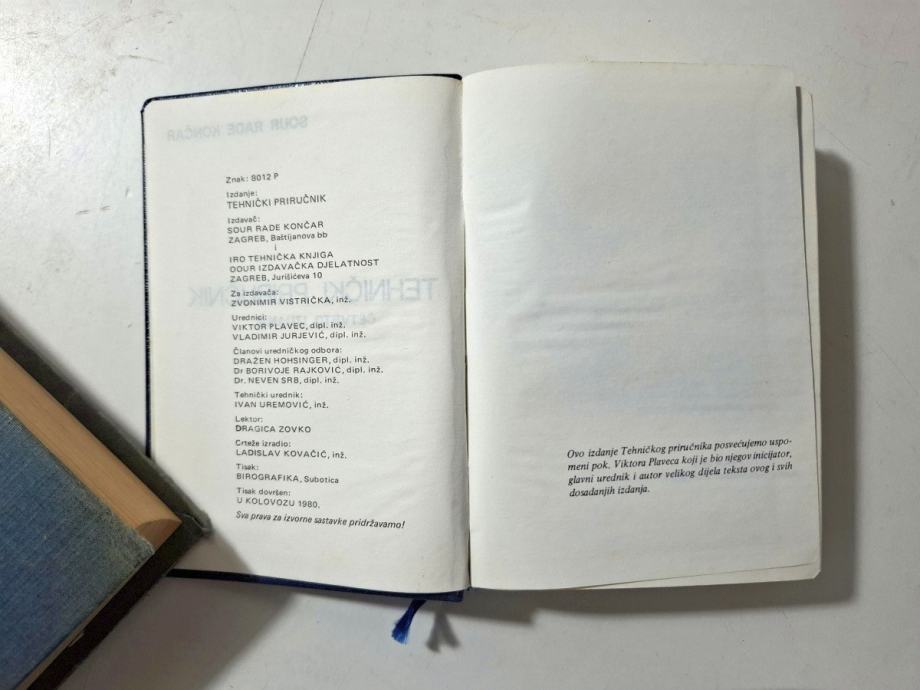 Znak: 8012 P
Izdanje:
TEHNIČKI PRIRUČNIK
Izdavač:
SOUR RADE KONČAR
ZAGREB, Baštijanova bb
i
IRO TEHNIČKA KNJIGA
OOUR IZDAVAČKA DJELATNOST
ZAGREB, Jurišićeva 10
Za izdavača:
ZVONIMIR VISTRIČKA, inž.
Urednici:
VIKTOR PLAVEC, dipl. inž.
VLADIMIR JURJEVIĆ, dipl. inž.
Članovi uredničkog odbora:
DRAŽEN HOHSINGER, dipl. inž.
Dr BORIVOJE RAJKOVIĆ, dipl. inž.
Dr. NEVEN SRB, dipl. inž.
Tehnički urednik:
IVAN UREMOVIĆ, inž.
Lektor:
DRAGICA ZOVKO
Crteže izradio:
LADISLAV KOVAČIĆ, inž.
Tisak:
BIROGRAFIKA, Subotica
Tisak dovršen:
U KOLOVOZU 1980.
Sva prava za izvorne sastavke pridržavamo!
Ovo izdanje Tehničkog priručnika posvećujemo uspo-
meni pok. Viktora Plaveca koji je bio njegov inicijator,
glavni urednik i autor velikog dijela teksta ovog i svih
dosadanjih izdanja.